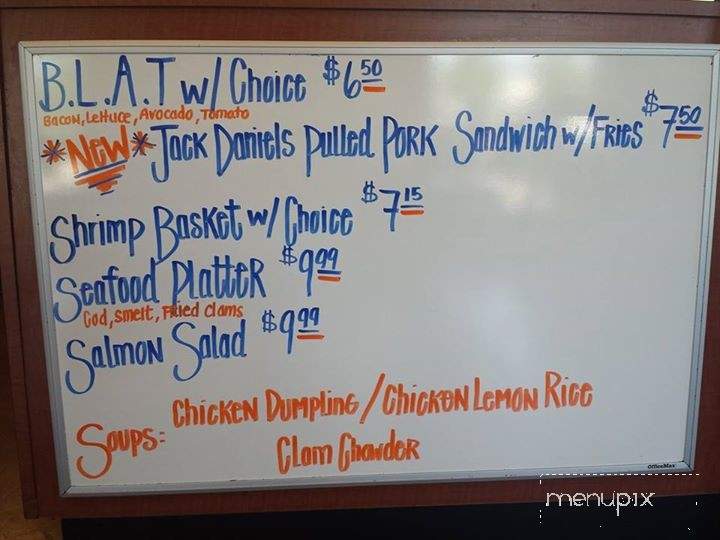 B.L.A.T w/ Choice $6.50
Bacon, Lettuce, Avocado, Tomato
*New* Jack Daniels Pulled Pork Sandwich w/ Fries $7.50
Shrimp Basket w/ Choice $7.15
Seafood Platter $9.99
Cod, Smelt, Fried Clams
Salmon Salad $9.99
Soups: Chicken Dumpling / Chicken Lemon Rice
Clam Chowder
OfficeMax
menupix